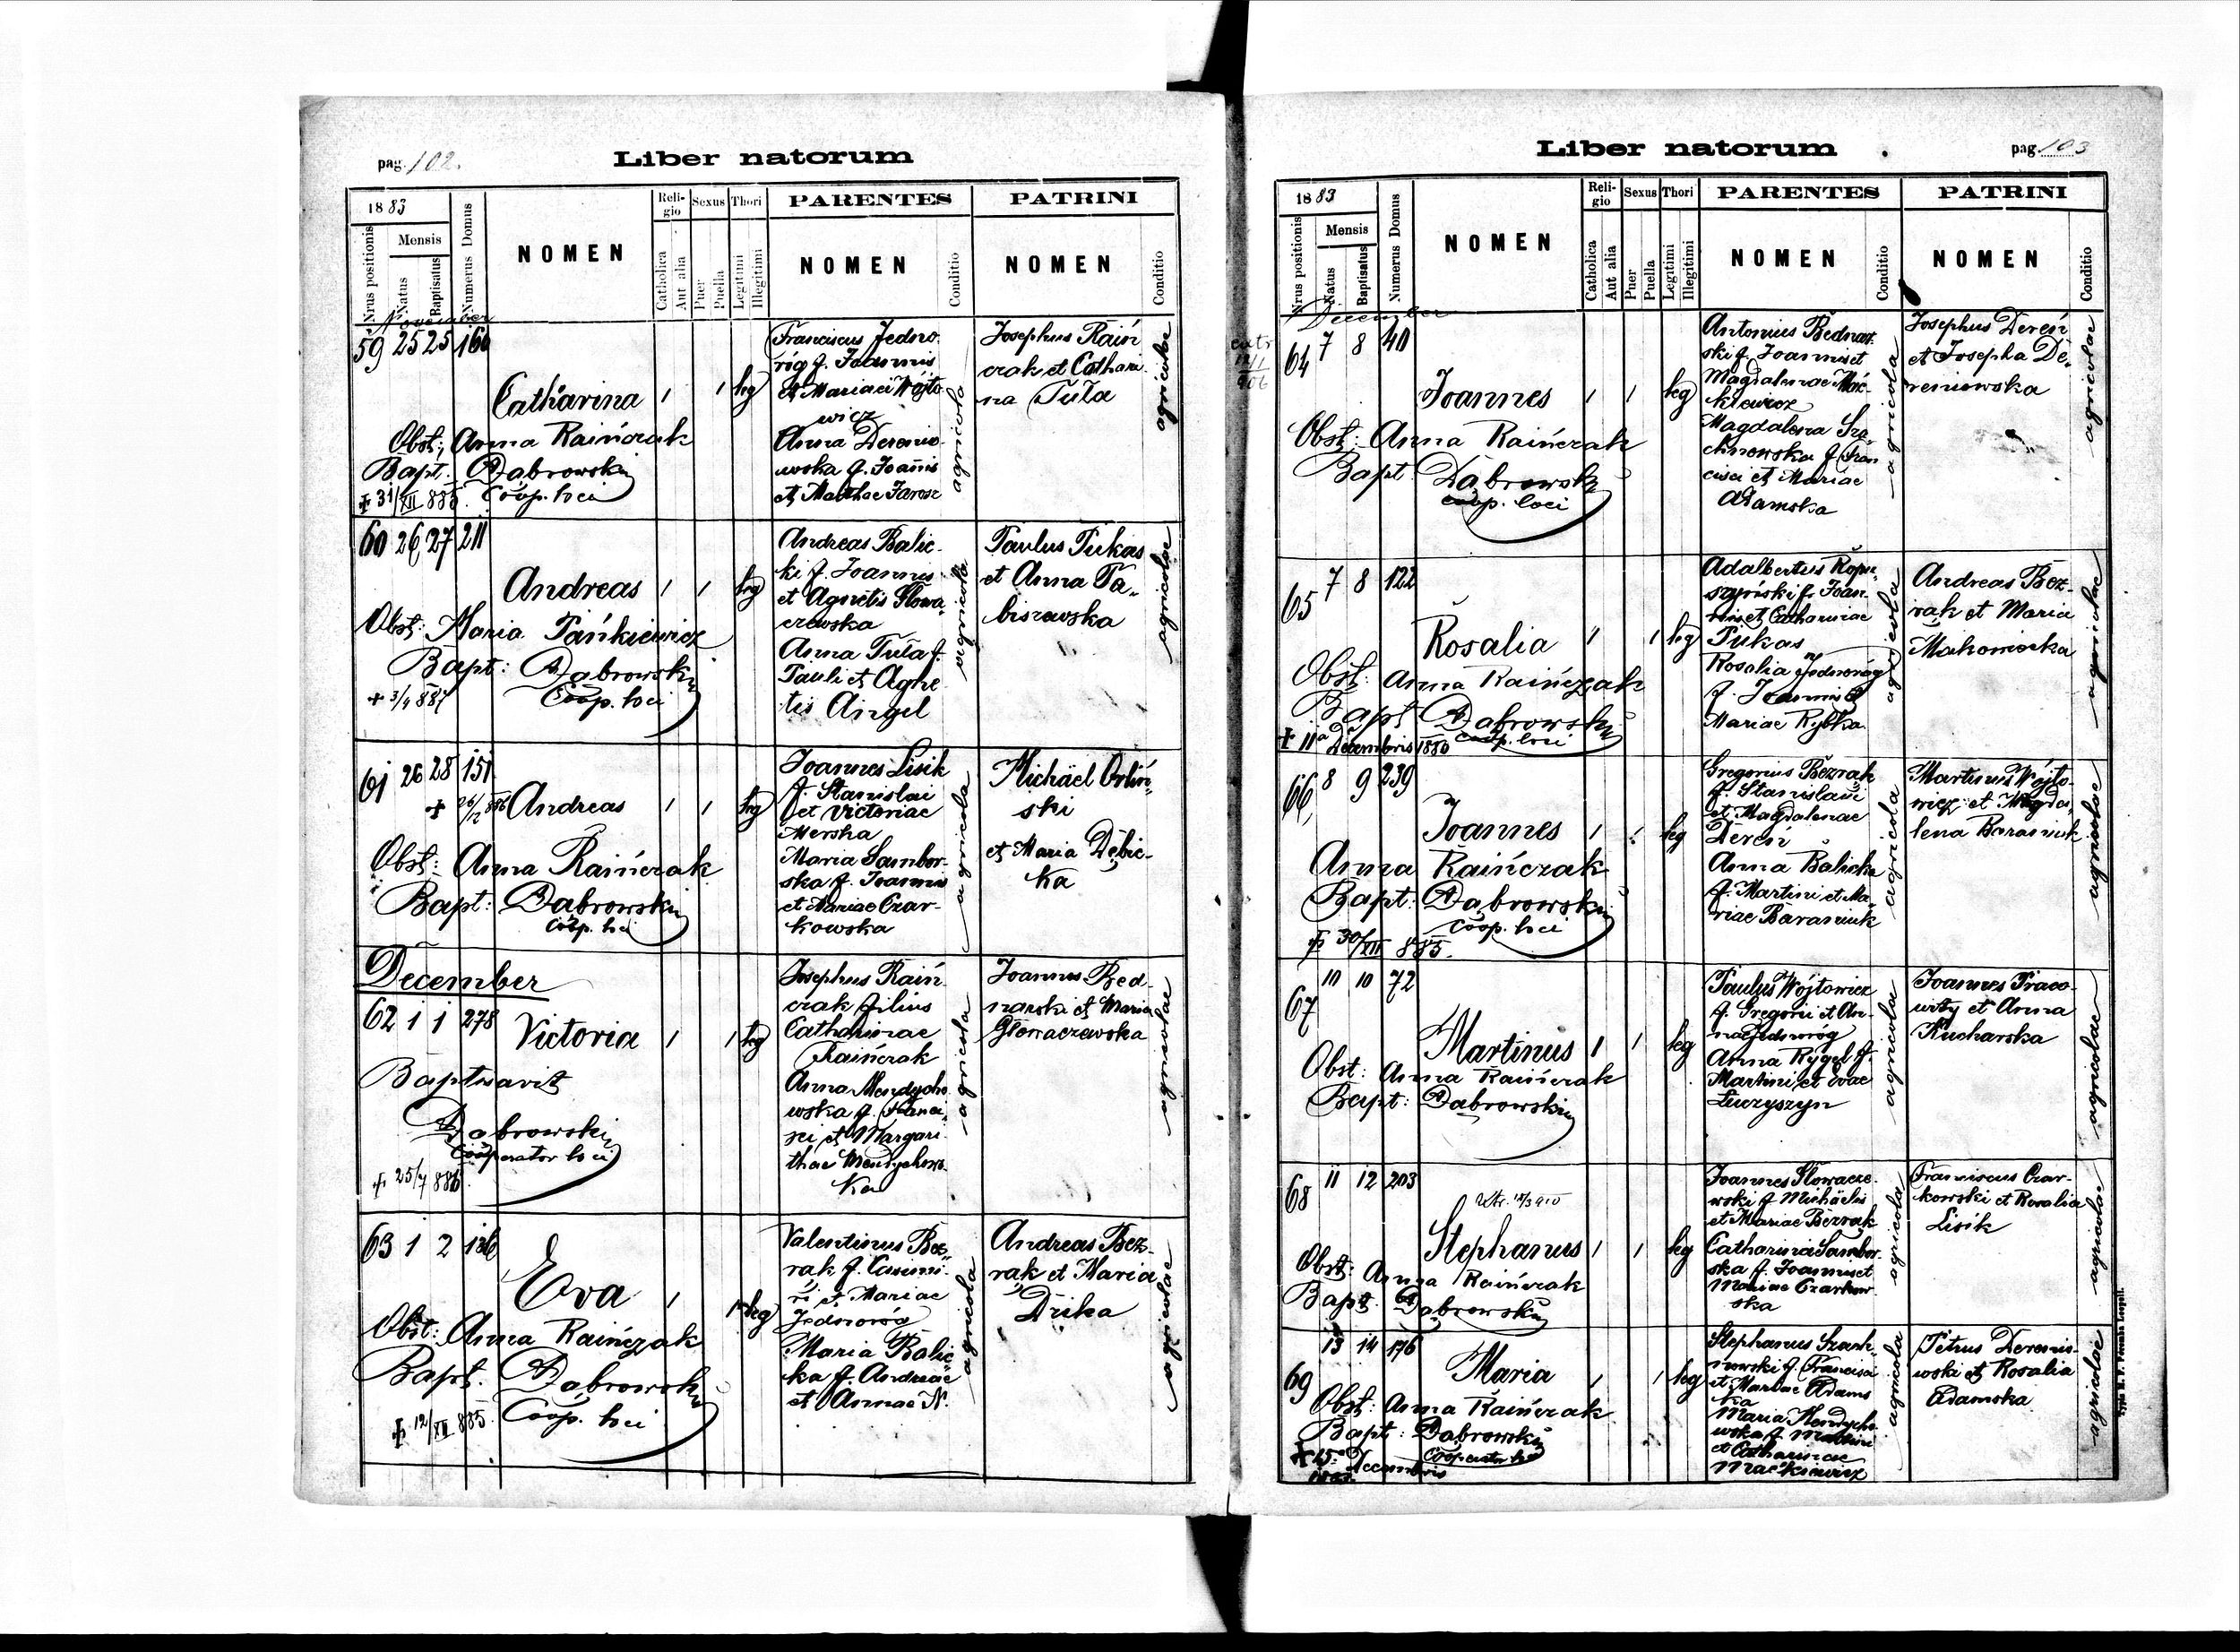 pag. 102.
Liber natorum
1883
Nrus positionis
Mensis
Natus
Baptisatus
Numerus Domus
NOMEN
Religio
Catholica
Aut alia
Sexus
Puer
Puella
Thori
Legitimi
Illegitimi
PARENTES
NOMEN
Conditio
PATRINI
NOMEN
Conditio
November
59 25 25 160
Catharina 1 1 leg
Obst: Anna Raińczak
Bapt: Dąbrowski
Coop. loci
+ 31/XII 885.
Franciscus Jedno-
róg f. Joannis
et Mariae Wójto
wicz
Anna Derenio-
wska f. Joannis
et Marthae Jarosz
agricola
Josephus Raiń
czak et Cathari
na Tuła
agricolae
60 26 27 211
Andreas 1 1 leg
Obst: Maria Pańkiewicz
Bapt: Dąbrowski
Coop. loci
+ 3/4 887
Andreas Balic-
ki f. Joannis
et Agnetis Głowa-
czewska
Anna Tuła f.
Pauli et Agne
tis Angel
agricola
Paulus Pukas
et Anna Ta-
biszewska
agricolae
61 26 28 151
+ 26/12 886
Andreas 1 1 leg
Obst: Anna Raińczak
Bapt: Dąbrowski
Coop. loci
Joannes Lisik
f. Stanislai
et Victoriae
Merska
Maria Sambor-
ska f. Joannis
et Mariae Czar-
kowska
agricola
Michäel Orliń-
ski
et Maria Dębic-
ka
agricolae
December
62 1 1 278
Victoria 1 1 leg
Baptisavit
Dąbrowski
Cooperator loci
+ 25/7 886
Josephus Raiń
czak filius
Catharinae
Raińczak
Anna Mendycho
wska f. Franci-
sci et Margari-
thae Mendychow
ka
agricola
Joannes Bed-
narski et Maria
Głowaczewska
agricolae
63 1 2 136
Eva 1 1 leg
Obst: Anna Raińczak
Bapt. Dąbrowski
Coop. loci
+ 12/XII 885.
Valentinus Bez-
rak f. Casimi-
ri et Mariae
Jednoróg
Maria Balic-
ka f. Andreae
et Annae N.
agricola
Andreas Bez-
rak et Maria
Dzika
agricolae
Liber natorum
pag. 103
1883
Nrus positionis
Mensis
Natus
Baptisatus
Numerus Domus
NOMEN
Religio
Catholica
Aut alia
Sexus
Puer
Puella
Thori
Legitimi
Illegitimi
PARENTES
NOMEN
Conditio
PATRINI
NOMEN
Conditio
December
64 7 8 40
Joannes 1 1 leg
Obst: Anna Raińczak
Bapt Dąbrowski
coop. loci
Antonius Bednar
ski f. Joannis et
Magdalenae Mać-
kiewicz
Magdalena Sza-
chnowska f. Fran
cisci et Mariae
Adamska
agricola
Josephus Dereń
et Josepha De-
reniowska
agricolae
65 7 8 122
Rosalia 1 1 leg
Obst: Anna Raińczak
Bapt Dąbrowski
coop. loci
+ 11a Decembris
Adalbertus Kopu-
szyński f. Joan-
nis et Catharinae
Pukas
Rosalia Jednoróg
f. Joannis et
Mariae Rybka
agricola
Andreas Bez-
rak et Maria
Makowiecka
agricolae
66 8 9 239
Joannes 1 1 leg
Anna Raińczak
Bapt: Dąbrowski
Coop. loci
+ 30/XII 885.
Gregorius Bezrak
f. Stanislaii
et Magdalenae
Dereń
Anna Balicka
f. Martini et Ma-
riae Baraniuk
agricola
Martinus Wójto-
wicz et Magda-
lena Baraniuk
agricolae
67 10 10 72
Martinus 1 1 leg
Obst: Anna Raińczak
Bapt: Dąbrowski
Paulus Wójtowicz
f. Gregorii et An-
nae Jednoróg
Anna Rygel f.
Martini et Evae
Łuczyszyn
agricola
Joannes Praco-
wity et Anna
Kucharska
agricolae
68 11 12 203
Stephanus 1 1 leg
Obst: Anna Raińczak
Bapt. Dąbrowski
Joannes Głowacze
wski f. Michäelis
et Mariae Bezrak
Catharina Sambor-
ska f. Joannis et
Mariae Czarkow
ska
agricola
Franciscus Czar-
kowski et Rosalia
Lisik
agricolae
69 13 14 176
Maria 1 1 leg
Obst: Anna Raińczak
Bapt: Dąbrowski
Cooperator loci
+ 15a Decembris
Stephanus Szach-
nowski f. Francisci
et Mariae Adams
ka
Maria Mendycho
wska f. Martini
et Catharinae
Maćkiewicz
agricola
Petrus Derenio-
wski et Rosalia
Adamska
agricolae